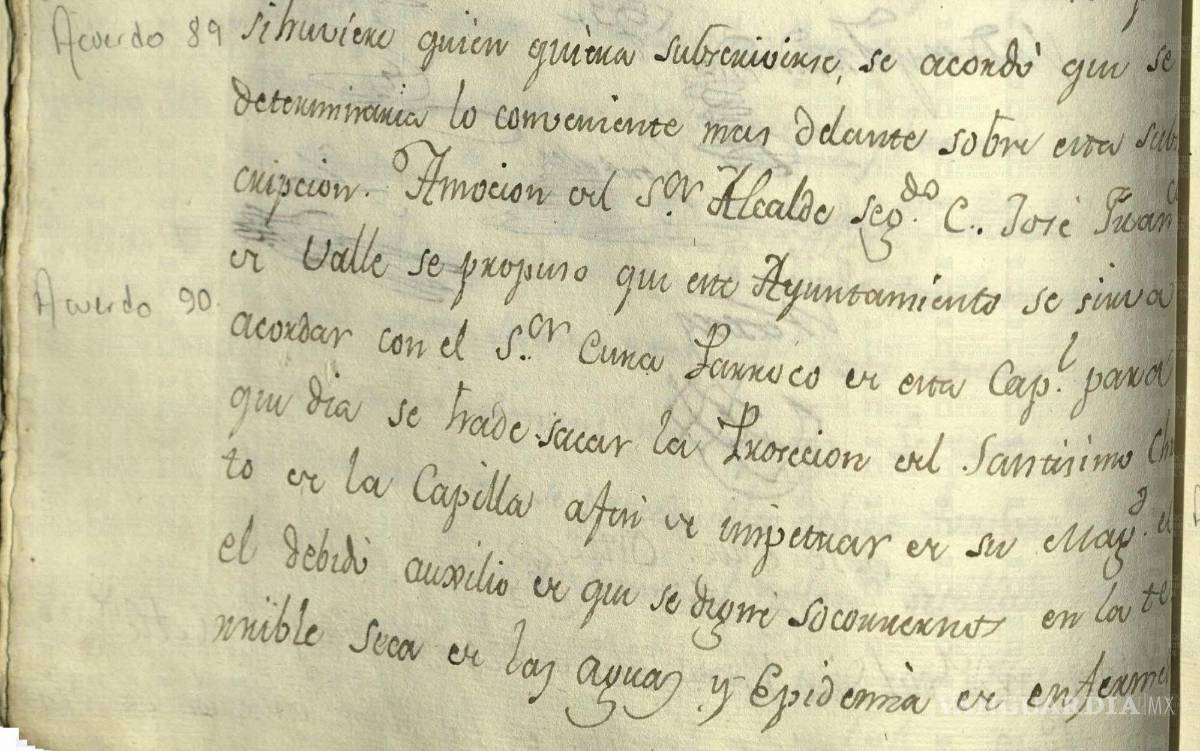 Acuerdo 89
si huviere quien quiera subscrivirse, se acordó que se
determinaria lo conveniente mas delante sobre esta sub
cripcion. Amocion del S.or Alcalde seg.do C. José Juan
de Valle se propuso que este Ayuntamiento se sirva
Acuerdo 90.
acordar con el S.or Cura Parroco de esta Cap.l para
que dia se hade sacar la Prosecion del Santisimo Chri
to de la Capilla afin de impetrar de su Mag.d
el debido auxilio de que se digne socorrernos en la te
rrible seca de las aguas y Epidemia de enferme
VANGUARDIA|MX